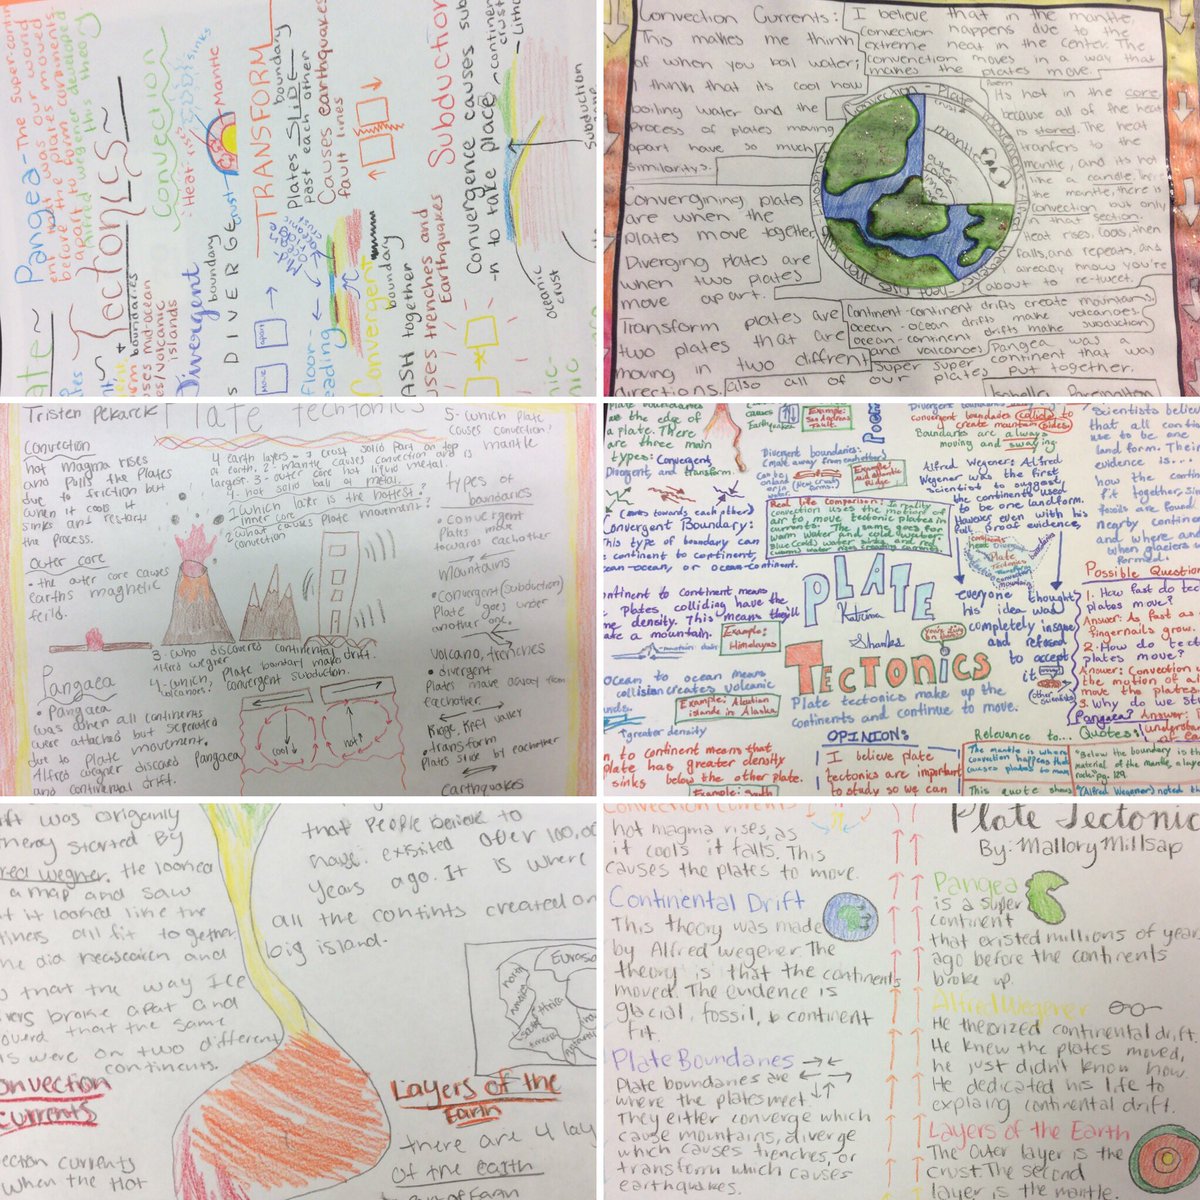 Pangea - The supercontin
ent that was our world
before the plates moved
apart to form continents.
Alfred Wegener developed
this theory
Tectonics
Convection
Heat
sinks
Mantle
crust
Divergent
boundary
DIVERGE
TRANSFORM
boundary
Plates SLIDE
past each other
Causes earthquakes
fault lines
Convergent
boundary
ASH together
uses trenches and
Earthquakes
Subduction
Convergence causes sub
-n to take place
continen
crust
oceanic
crust
subduction
Convection Currents:
This makes me think
of when you boil water;
I think that its cool how
boiling water and the
Process of plates moving
apart have so much
similarity.
Converging plates
are when the
plates move together,
Diverging plates are
when two plates
move apart.
Transform plates are
two plates that are
moving in two diffrent
directions.
I believe that in the mantle,
convection happens due to the
extreme heat in the center. The
convenction moves in a way that
makes the plates move.
Its not in the core
because all of the heat
is stored. The heat
tranfers to the
mantle, and its not
like a candle. Here
the mantle, there is
convection but only
in that section.
Heat rises, cools, then
falls, and repeats and
already know you're
about to re-tweet.
mantle
Continent-continent drifts create mountains.
ocean-ocean drifts make volcanoes
ocean-continent drifts make subduction
and volcanoes
Pangea was a
super super
continent that was
put together.
also all of our plates
Tristen Pekarek
Plate tectonics
Convection
hot magma rises
and pulls the Plates
due to friction but
when it cools it
sinks and restarts
the process.
Outer core
• the outer core causes
earths magnetic
feild.
Pangaea
• Pangaea
was when all continents
were attached but seperated
due to Plate movement.
Alfred wegner discoved Pangaea
and continental drift.
4 earth layers = 1 crust solid part on top
of earth. 2 - mantle causes convection and is
largest. 3 - outer core hot liquid metal.
4 - hot solid ball of metal.
1 which layer is the hottest?
inner core
2 what causes plate movement?
convection
3 - who discovered continental drift.
Alfred wegner
4 - which Plate boundary makes
volcanoes? convergent subduction.
cool
hot
5 - which Plate
causes convection?
mantle
types of
boundaries
• convergent
Plates move
towards eachother
mountains
• convergent (subduction)
Plate goes under
another one.
volcano, trenches
• divergent
Plates move away from
eachother.
Ridge, Rift valley
• transform
Plates slide by eachother
earthquakes
Plate boundaries
as the edge of
a plate. There
are three main
types: Convergent,
Divergent and transform.
causes
Earthquakes
Example:
San Andreas
fault.
Divergent boundaries:
(move away from eachother)
Example:
Mid atlantic
Ridge
(comes towards each other)
Convergent Boundary:
This type of boundary can
e continent to continent,
ean-ocean, or ocean-continent.
ontinent to continent means
plates colliding have the
me density. This means they'll
ake a mountain.
Example:
Himalayas
ocean to ocean means
collision creates volcanic
islands.
Example: Aleutian
islands in Alaska
greater density
n to continent means that
plate has greater density
sinks below the other plate.
Example: South
Real Life Comparison: In reality
convection uses the motion of
air to, move tectonic plates in
currents. The same goes for
warm water and cold water.
PLATE
Katrina
Shanks
TECTONICS
Plate tectonics make up the
continents and continue to move.
OPINION:
I believe plate
tectonics are important
to study so we can
convergent boundaries collide to
create mountain sides.
Boundaries are always
moving and swaying
Alfred Wegener: Alfred
Wegener was the first
scientist to suggest
the continents used
to be one landform.
However even with his
full proof evidence,
everyone thought
his idea was
completely insane
and refused
to accept
it.
other scientists
Relevance to...
The mantle is where
convection happens that
causes plates to move
This quote shows
Scientists believ
that all contin
use to be one
land form. Their
evidence is...
how the contin
fit together. Sim
fossils are found
nearby contin
and where and
when glaciers
formed.
Possible Question
1. How fast do tec
plates move?
Answer: As fast as
fingernails grow.
2. How do tecto
plates move?
Answer: Convection i
the motion of ai
move the plates
3. Why do we st
Pangaea? Answer:
understan
Quotes:
"Below the boundary is the
material of the mantle, a layer
rock" pg. 129
"(Alfred Wegener) noted th
rift was origanily
heory started By
red wegner. He looked
a map and saw
t it looked like the
tiners all fit together
he did reasearch and
that the way Ice
ivers broke apart and
overd that the same
ls were on two different
continents.
onvection
currents
ection currents
when the Hot
that People believe to
have existed over 100,00
years ago. It is where
all the contints created on
big island.
Eurasia
north
america
south
america
africa
Layers of the
Earth
there are 4 lay
of the earth
Convection Currents
hot magma rises, as
it cools it falls. This
causes the plates to move.
Continental Drift
This theory was made
by Alfred Wegener. The
theory is that the continents
moved. The evidence is
glacial, fossil, & continent
fit.
Plate Boundaries
Plate boundaries are
where the plates meet
They either converge which
cause mountains, diverge
which causes trenches, or
transform which causes
earthquakes.
Plate Tectonic
By: Mallory Millsap
Pangea
is a super
continent
that existed millions of year
ago before the continents
broke up.
Alfred Wegener
He theorized continental drift.
He knew the plates moved,
he just didn't know how.
He dedicated his life to
explaing continental drift.
Layers of the Earth
The outer layer is the
crust. The second
layer is the mantle.